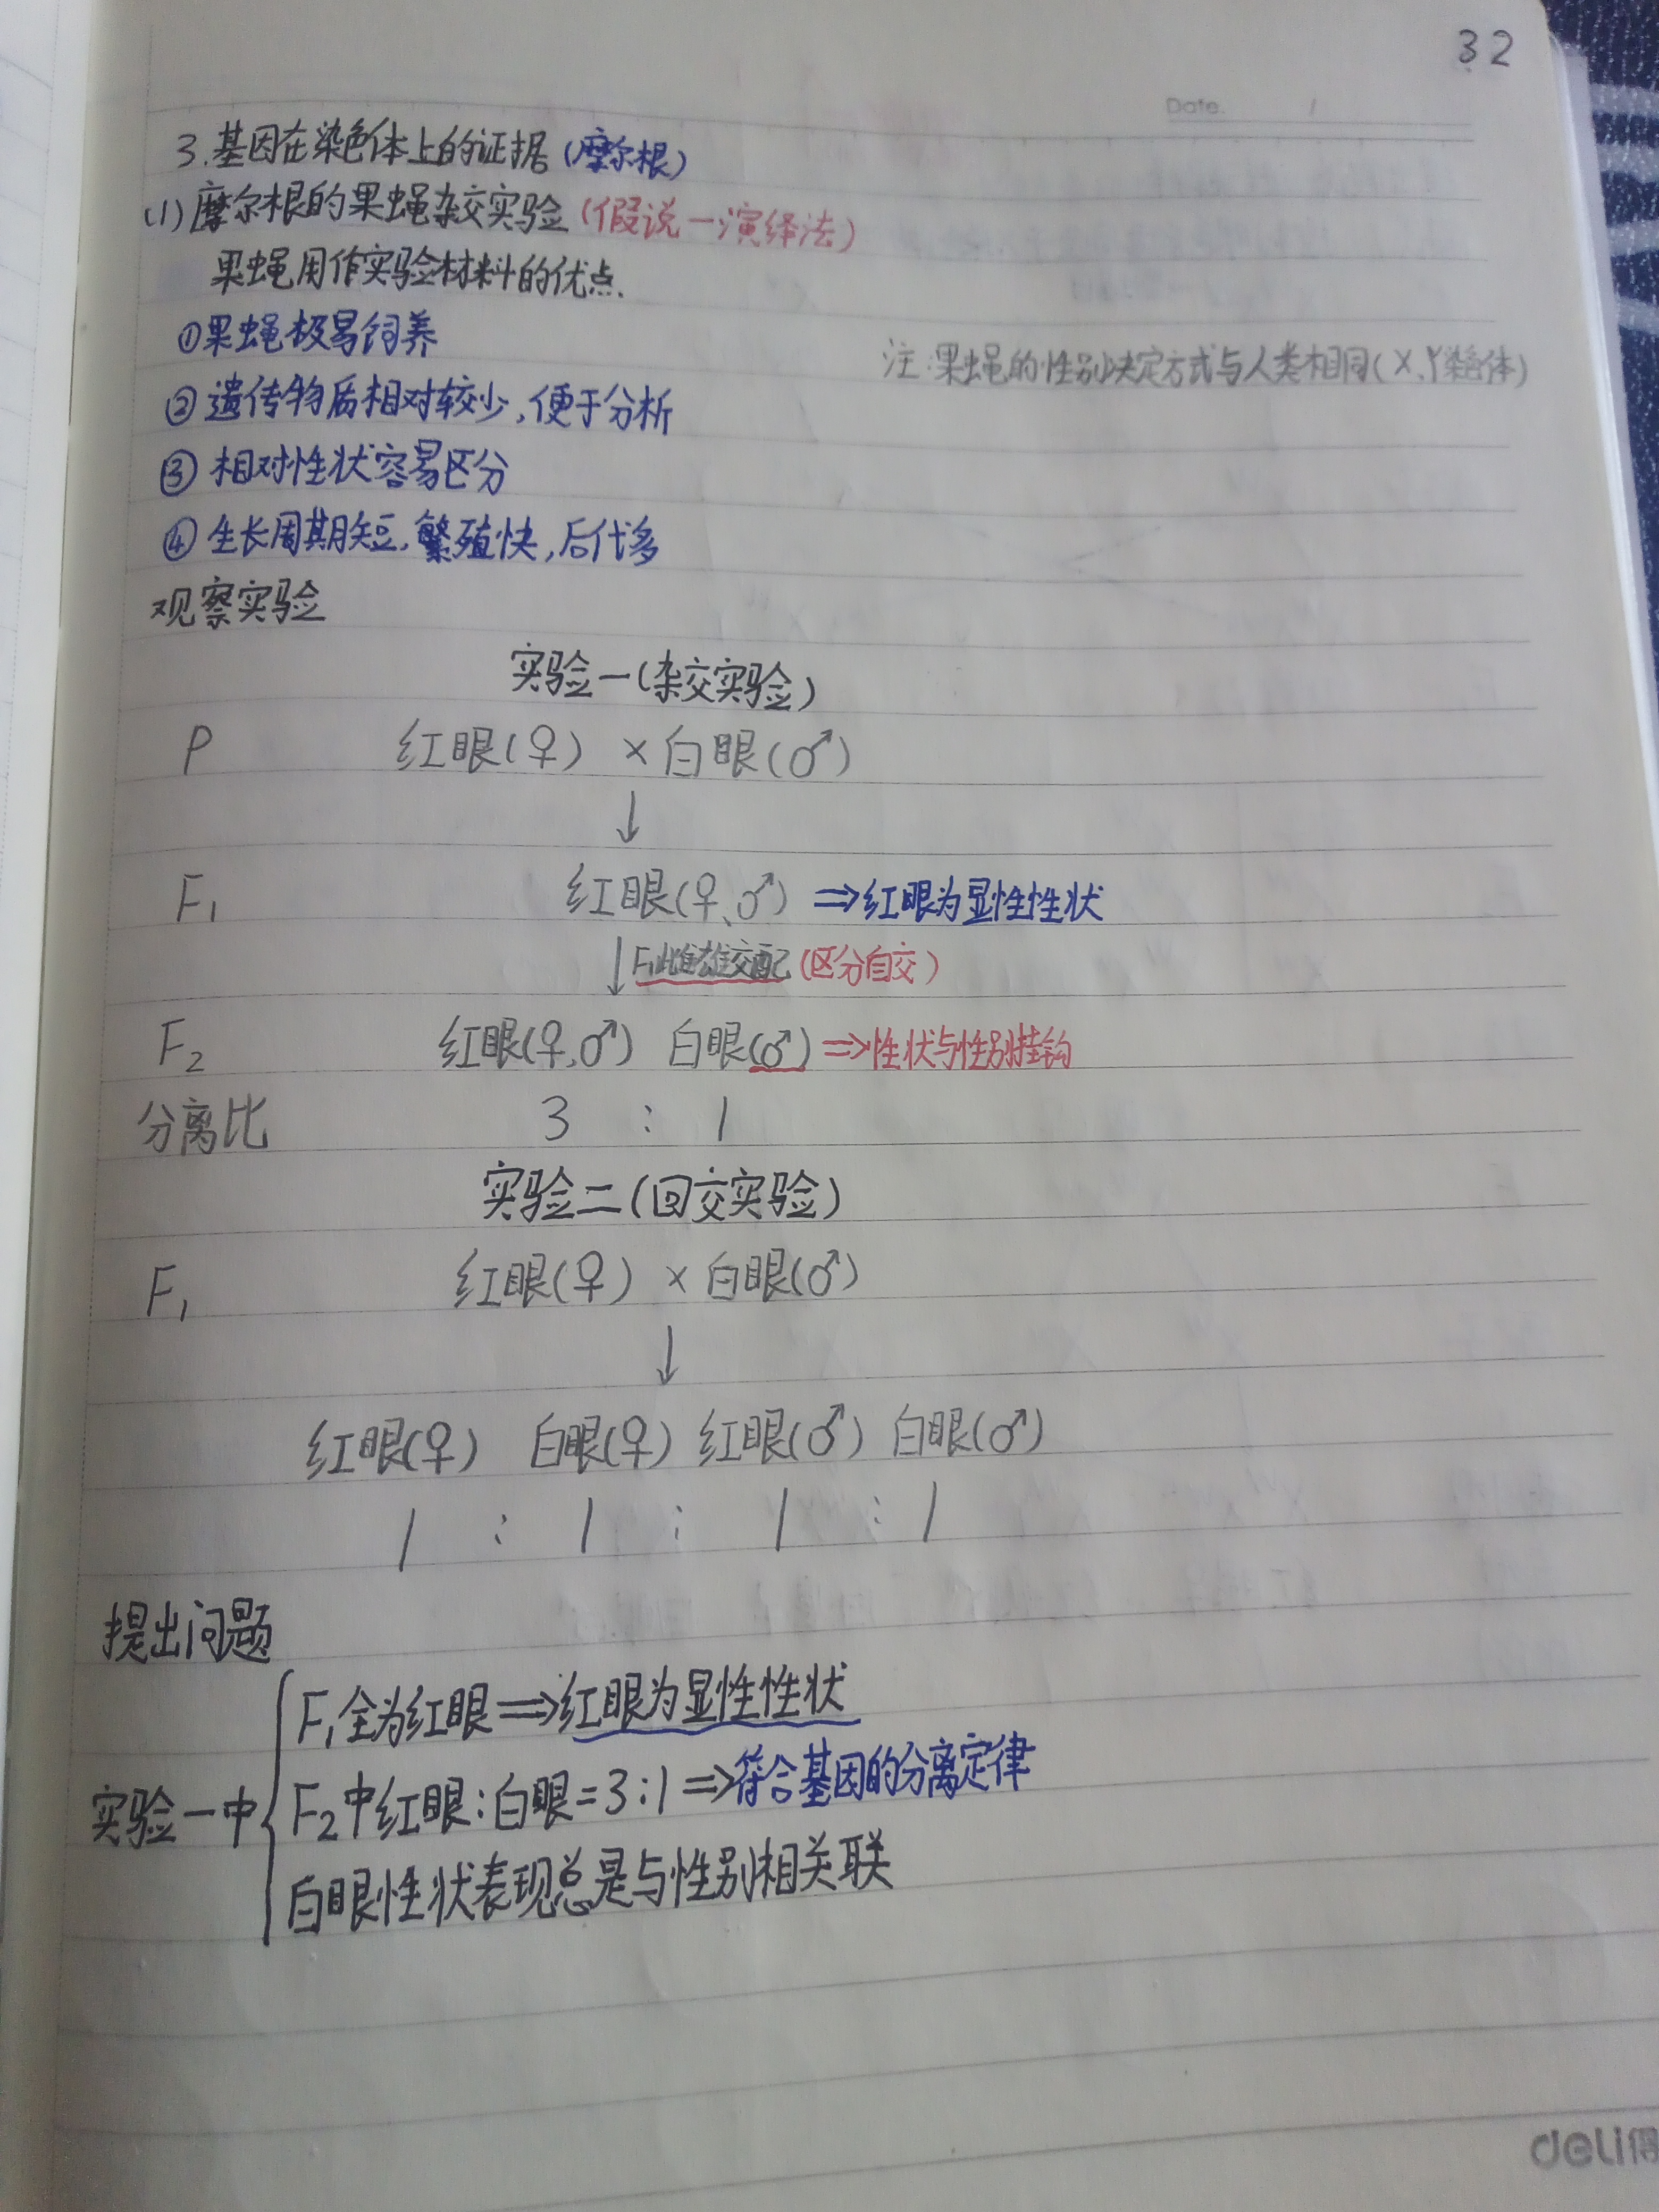 32
Date. /
3.基因在染色体上的证据(摩尔根)
(1)摩尔根的果蝇杂交实验(假说一演绎法)
果蝇用作实验材料的优点.
①果蝇极易饲养
注:果蝇的性别决定方式与人类相同(X、Y染色体)
②遗传物质相对较少,便于分析
③相对性状容易区分
④生长周期短,繁殖快,后代多
观察实验
实验一(杂交实验)
P 红眼(♀) × 白眼(♂)
↓
F₁ 红眼(♀、♂) ⇒红眼为显性性状
↓F₁雌雄交配(区分自交)
F₂ 红眼(♀,♂) 白眼(♂)⇒性状与性别挂钩
分离比 3 : 1
实验二(回交实验)
F₁ 红眼(♀) × 白眼(♂)
↓
红眼(♀) 白眼(♀) 红眼(♂) 白眼(♂)
1 : 1 : 1 : 1
提出问题
F₁全为红眼⇒红眼为显性性状
实验一中 F₂中红眼:白眼=3:1⇒符合基因的分离定律
白眼性状表现总是与性别相关联
deli得